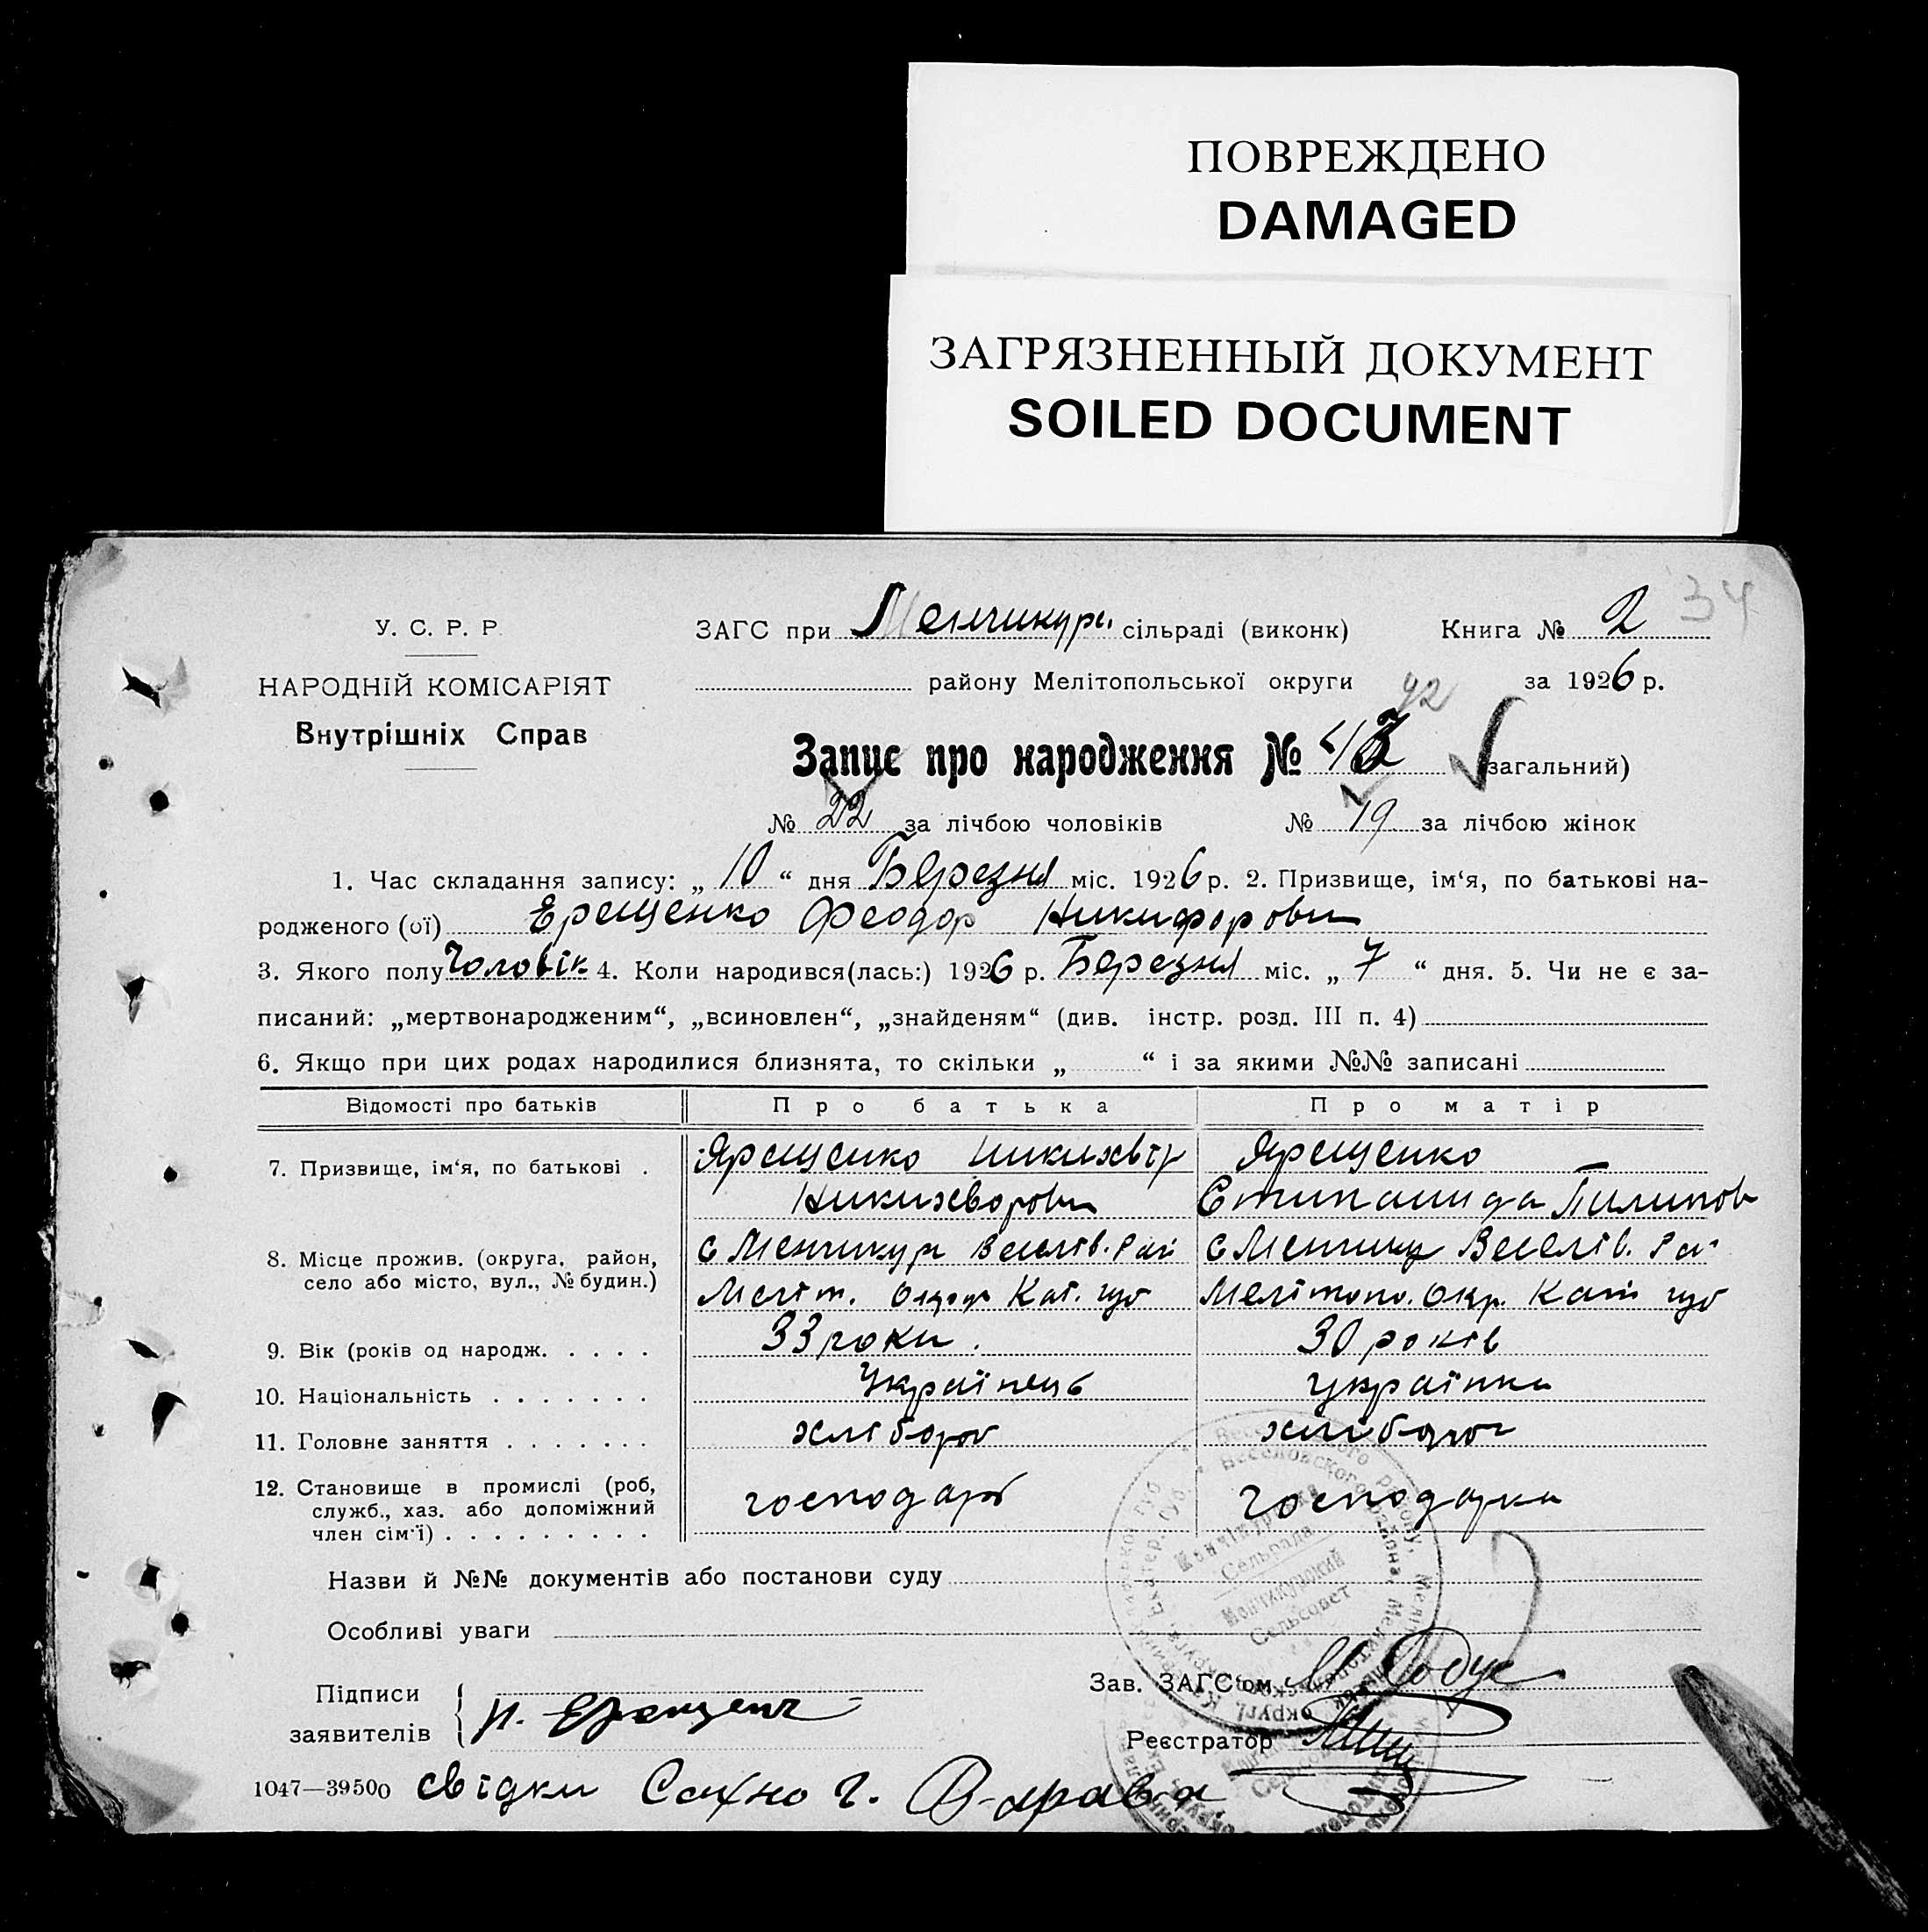 ПОВРЕЖДЕНО
DAMAGED
ЗАГРЯЗНЕННЫЙ ДОКУМЕНТ
SOILED DOCUMENT
34
У. С. Р. Р.
НАРОДНІЙ КОМІСАРІЯТ
Внутрішніх Справ
ЗАГС при Менчикур. сільраді (виконк) Книга № 2
району Мелітопольської округи за 1926 р.
42
Запис про народження № 43 (загальний)
№ 22 за лічбою чоловіків № 19 за лічбою жінок
1. Час складання запису: „ 10 “ дня Березня міс. 1926 р. 2. Призвище, ім‘я, по батькові на-
родженого (ої) Ерещенко Феодор Никифорови
3. Якого полу Чоловік 4. Коли народився(лась:) 1926 р. Березня міс. „ 7 “ дня. 5. Чи не є за-
писаний: „мертвонародженим“, „всиновлен“, „знайденям“ (див. інстр. розд. III п. 4)
6. Якщо при цих родах народилися близнята, то скільки „ “ і за якими №№ записані
Відомості про батьків Про батька Про матір
7. Призвище, ім‘я, по батькові . Ярещенко Никихвір Ярещенко
Никихворови Степанида Пилипов
8. Місце прожив. (округа, район, с Менчикур Веселів. Рай с Менчику Веселів. Рай
село або місто, вул., № будин.) Меліт. Округ Кат. губ Мелітопо. Окр. Кат губ
9. Вік (років од народж. . . . . 33 роки. 30 років
10. Національність . . . . . . . Українець українка
11. Головне заняття . . . . . . . хлібороб хлібороб
12. Становище в промислі (роб, служб., хаз. або допоміжний член сім‘ї) . . . . . . . . . господарь господарка
Назви й №№ документів або постанови суду
Особливі уваги
Сельрада
Сельсовет
Підписи
заявителів Н. Ерещенк
Зав. ЗАГС‘ом
Реєстратор
1047—39500 свідки Сахно Г.